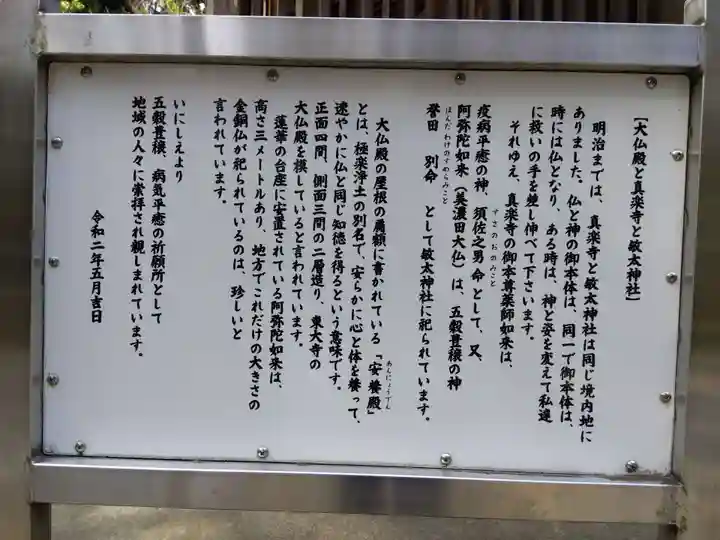 【大仏殿と真楽寺と敏太神社】
明治までは、真楽寺と敏太神社は同じ境内地に
ありました。仏と神の御本体は、同一で御本体は、
時には仏となり、ある時は、神と姿を変えて私達
に救いの手を差し伸べて下さいます。
それゆえ、真楽寺の御本尊薬師如来は、
すさのおのみこと
疫病平癒の神、須佐之男命として、又、
阿弥陀如来(美濃田大仏)は、五穀豊穣の神
ほんだわけのすめらみこと
誉田 別命 として敏太神社に祀られています。
あんにょうでん
大仏殿の屋根の扁額に書かれている「安養殿」
とは、極楽浄土の別名で、安らかに心と体を養って、
速やかに仏と同じ知徳を得るという意味です。
正面四間、側面三間の二層造り、東大寺の
大仏殿を模していると言われています。
蓮華の台座に安置されている阿弥陀如来は、
高さ三メートルあり、地方でこれだけの大きさの
金銅仏が祀られているのは、珍しいと
言われています。
いにしえより
五穀豊穣、病気平癒の祈願所として
地域の人々に崇拝され親しまれています。
令和二年五月吉日